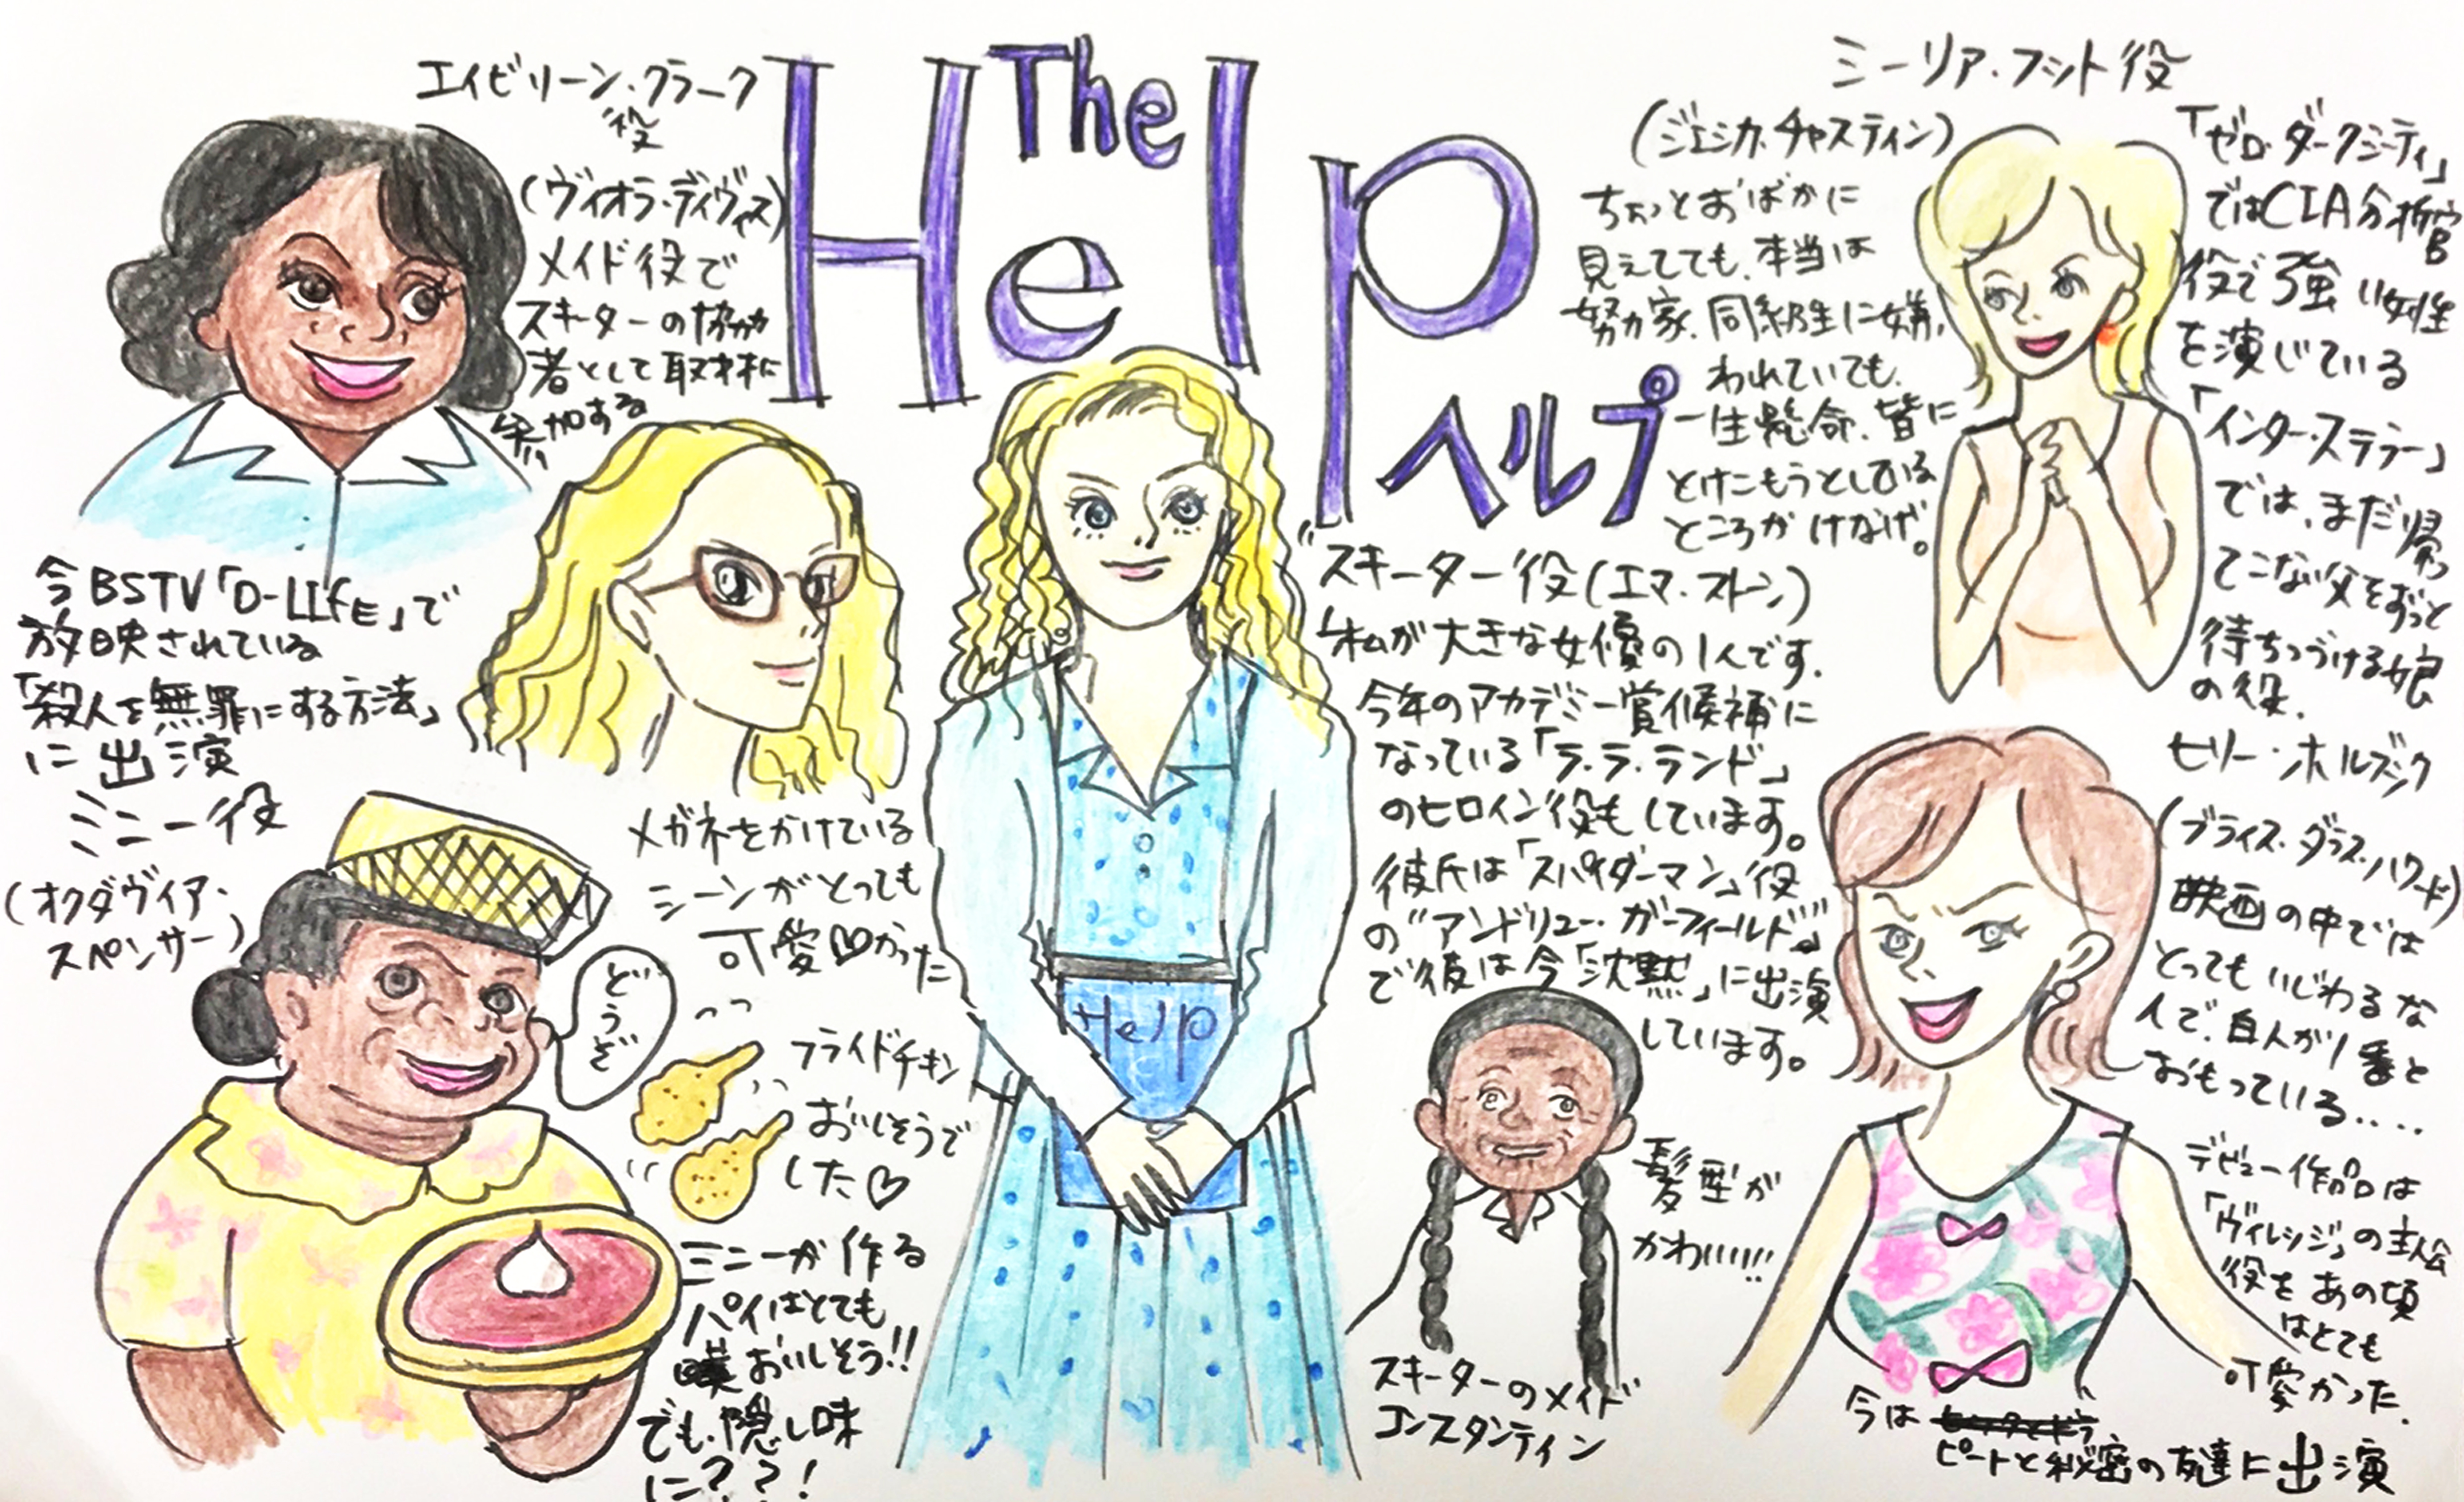 The
Help
ヘルプ
エイビリーン・クラーク
役
(ヴィオラ・デイヴィス)
メイド役で
スキーターの協力
者として取材に
参加する
今BSTV「D-LIfE」で
放映されている
「殺人を無罪にする方法」
に出演
ミニー役
(オクダヴィア・
スペンサー)
どうぞ
メガネをかけている
シーンがとっても
可愛♡かった
フライドチキン
おいしそうで
した♡
ミニーが作る
パイはとても
おいしそう!!
でも、隠し味
に??!
Help
スキーター役(エマ・ストーン)
私が大きな女優の1人です.
今年のアカデミー賞候補に
なっている「ラ・ラ・ランド」
のヒロイン役もしています。
彼氏は「スパイダーマン」役
の"アンドリュー・ガーフィールド"
で彼は今「沈黙」に出演
しています。
髪型が
かわいい!!
スキーターのメイド
コンスタンティン
ミーリア・フット役
(ジェシカ・チャスティン)
ちょっとおばかに
見えてても、本当は
努力家、同級生に嫌
われていても、
一生懸命、皆に
とけこもうとしている
ところがけなげ。
「ゼロ・ダークシーティ」
ではCIA分析官
役で強い女性
を演じている
「インターステラー」
では、まだ帰っ
てこない父をずっと
待ちつづける娘
の役.
ヒリー・ホルブック
(ブライス・ダラス・ハワード)
映画の中では
とってもいじわるな
人で、白人が1番と
おもっている‥‥
デビュー作品は
「ヴィレッジ」の主人公
役をあの頃
はとても
可愛かった.
今は
ピートと秘密の友達に出演